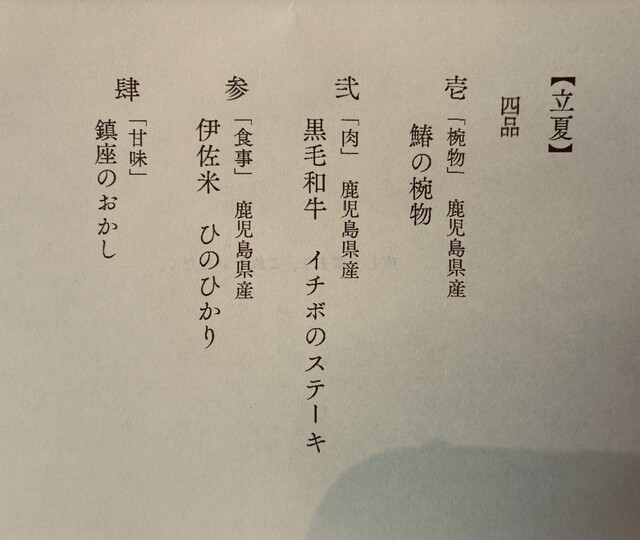 【立夏】
四品
壱「椀物」 鹿児島県産
鰆の椀物
弐「肉」 鹿児島県産
黒毛和牛 イチボのステーキ
参「食事」 鹿児島県産
伊佐米 ひのひかり
肆「甘味」
鎮座のおかし